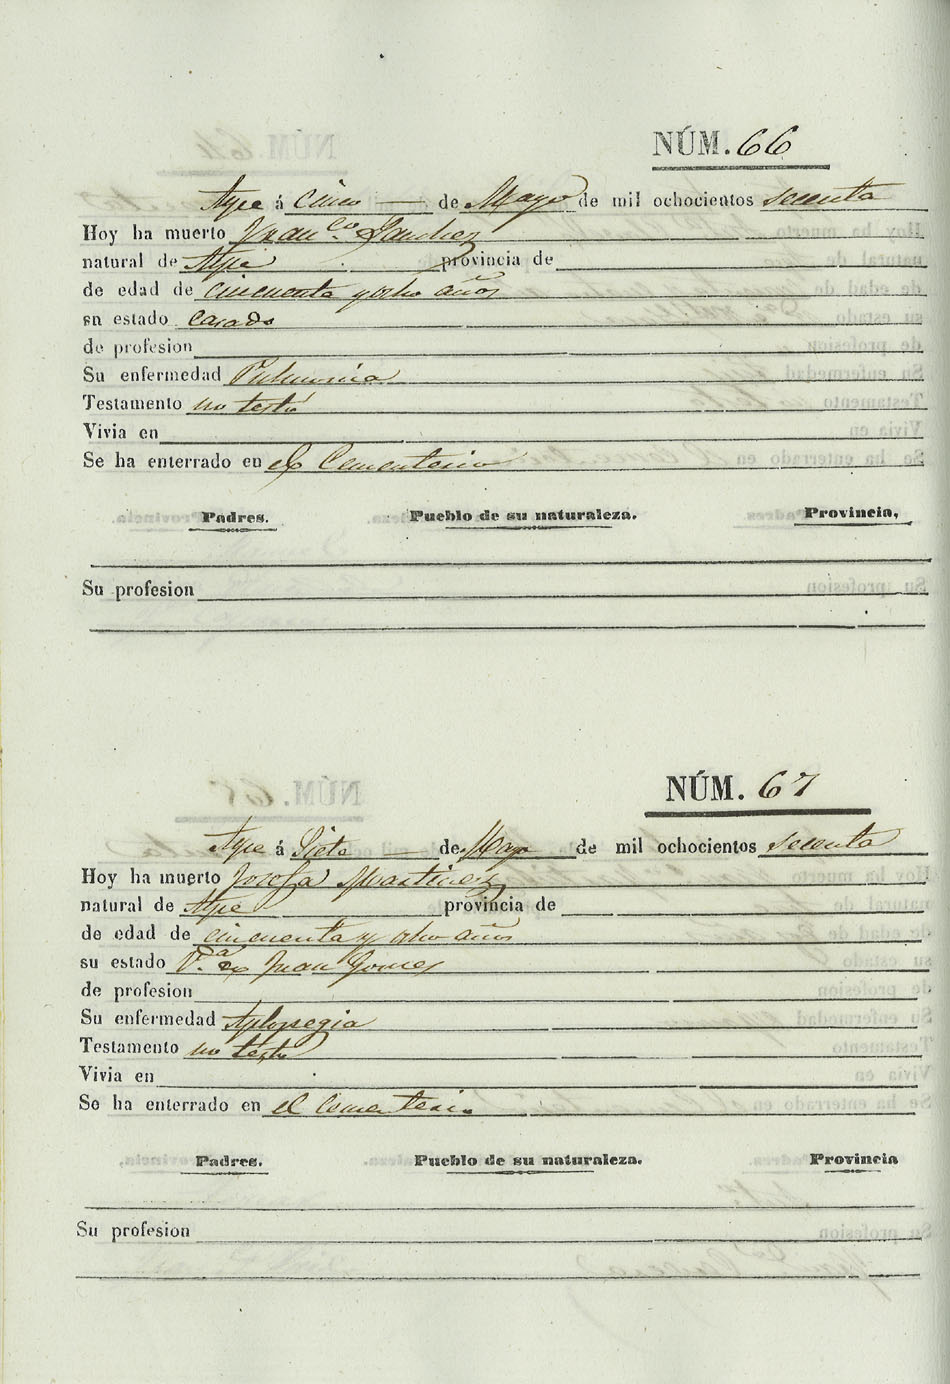 NÚM. 66
Aspe á Cinco de Mayo de mil ochocientos secenta
Hoy ha muerto Fran.co Sanchez
natural de Aspe provincia de
de edad de cincuenta y ocho años
su estado casado
de profesion
Su enfermedad Pulmonia
Testamento no testó
Vivia en
Se ha enterrado en el Cementerio
Padres. Pueblo de su naturaleza. Provincia,
Su profesion
NÚM. 67
Aspe á Siete de Mayo de mil ochocientos secenta
Hoy ha muerto Josefa Martinez
natural de Aspe provincia de
de edad de cincuenta y ocho años
su estado V.a de Juan Gomez
de profesion
Su enfermedad Aplopegia
Testamento no testó
Vivia en
Se ha enterrado en el Comenterio
Padres. Pueblo de su naturaleza. Provincia
Su profesion